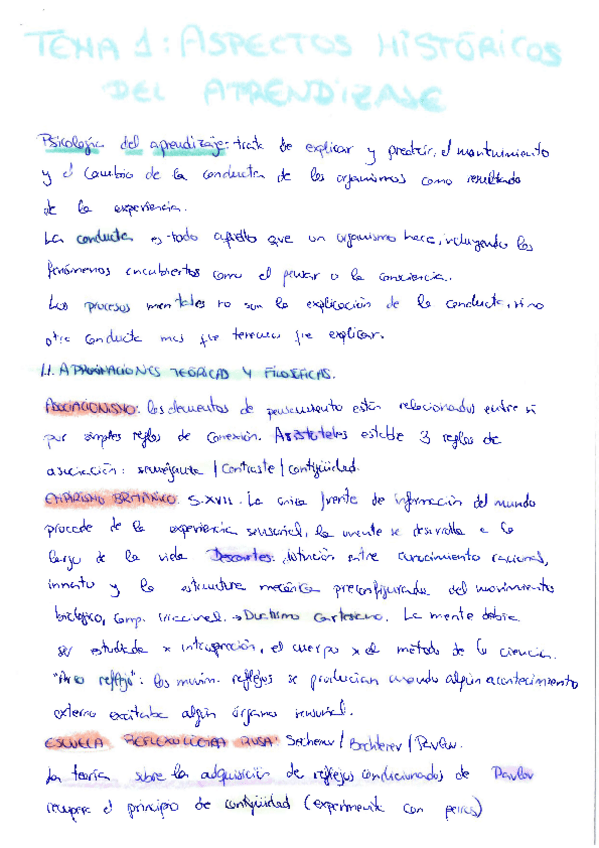 TEMA 1: ASPECTOS HISTÓRICOS
DEL APRENDIZAJE
Psicología del aprendizaje: trata de explicar y predecir, el mantenimiento
y el cambio de la conducta de los organismos como resultado
de la experiencia.
La conducta es todo aquello que un organismo hace, incluyendo los
fenómenos encubiertos como el pensar o la consciencia.
Los procesos mentales no son la explicación de la conducta, sino
otra conducta más que tenemos que explicar.
1.1. APROXIMACIONES TEÓRICAS Y FILOSÓFICAS.
ASOCIACIONISMO: los elementos de pensamiento están relacionados entre sí
por simples reglas de conexión. Aristóteles estable 3 reglas de
asociación: semejanza / contraste / contigüidad.
EMPIRISMO BRITÁNICO: S.XVII. La única fuente de información del mundo
procede de la experiencia sensorial, la mente se desarrolla a lo
largo de la vida. Descartes: distinción entre conocimiento racional,
innato y la estructura mecánica preconfigurada del movimiento
biológico, comp. irracional. → Dualismo cartesiano. La mente debía
ser estudiada x introspección, el cuerpo x el método de la ciencia.
"Arco reflejo": los movim. reflejos se producían cuando algún acontecimiento
externo excitaba algún órgano sensorial.
ESCUELA REFLEXOLÓGICA RUSA: Sechenov / Bechterev / Pavlov.
La teoría sobre la adquisición de reflejos condicionados de Pavlov
recupera el principio de contigüidad (experimenta con perros)